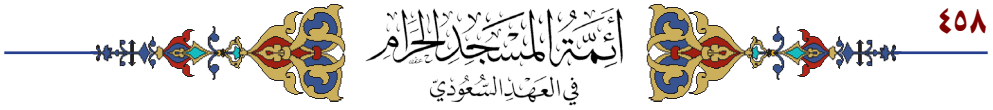 ٤٥٨
أَئِمَّةُ المَسْجِدِ الحَرَامِ
في العَهْدِ السُّعُودِيِّ